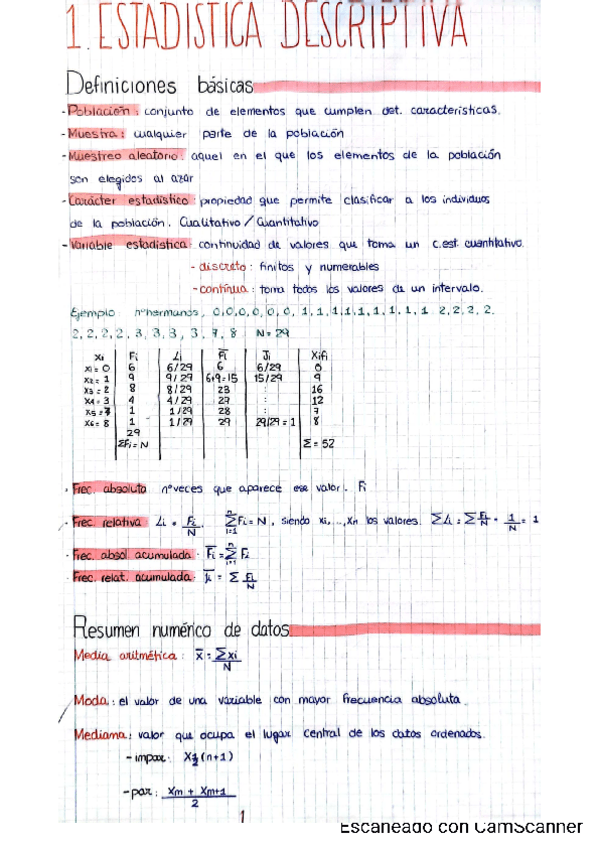 1. ESTADISTICA DESCRIPTIVA
Definiciones básicas
- Población: conjunto de elementos que cumplen det. características.
- Muestra: cualquier parte de la población
- Muestreo aleatorio: aquel en el que los elementos de la población
son elegidos al azar
- Carácter estadístico: propiedad que permite clasificar a los individuos
de la población. Cualitativo / Cuantitativo
- Variable estadística: continuidad de valores que toma un c.est. cuantitativo.
- discreto: finitos y numerables
- continua: toma todos los valores de un intervalo.
Ejemplo nºhermanos, 0,0,0,0,0,0, 1,1,1,1,1,1,1,1,1. 2,2,2,2.
2,2,2,2, 3,3,3,3, 7, 8. N=29
xi Fi Li F̄i Ji XiFi
x1=0 6 6/29 6 6/29 0
x2=1 9 9/29 6+9=15 15/29 9
x3=2 8 8/29 23 : 16
x4=3 4 4/29 27 : 12
x5=7 1 1/29 28 : 7
x6=8 1 1/29 29 29/29=1 8
29
ΣFi=N Σ=52
· Frec. absoluta nºveces que aparece ese valor. Fi
· Frec. relativa Li = Fi/N. Σ Fi=N, siendo xi,...,xn los valores. ΣLi = Σ Fi/N = 1/N = 1
· Frec. absol acumulada. F̄i = Σ Fi
· Frec. relat. acumulada. J̄i = Σ Fi/N
Resumen numérico de datos
Media aritmética: x̄ = Σxi/N
Moda: el valor de una variable con mayor frecuencia absoluta.
Mediana: valor que ocupa el lugar central de los datos ordenados.
- impar: X½(n+1)
- par: Xm + Xm+1 / 2
1
Escaneado con CamScanner